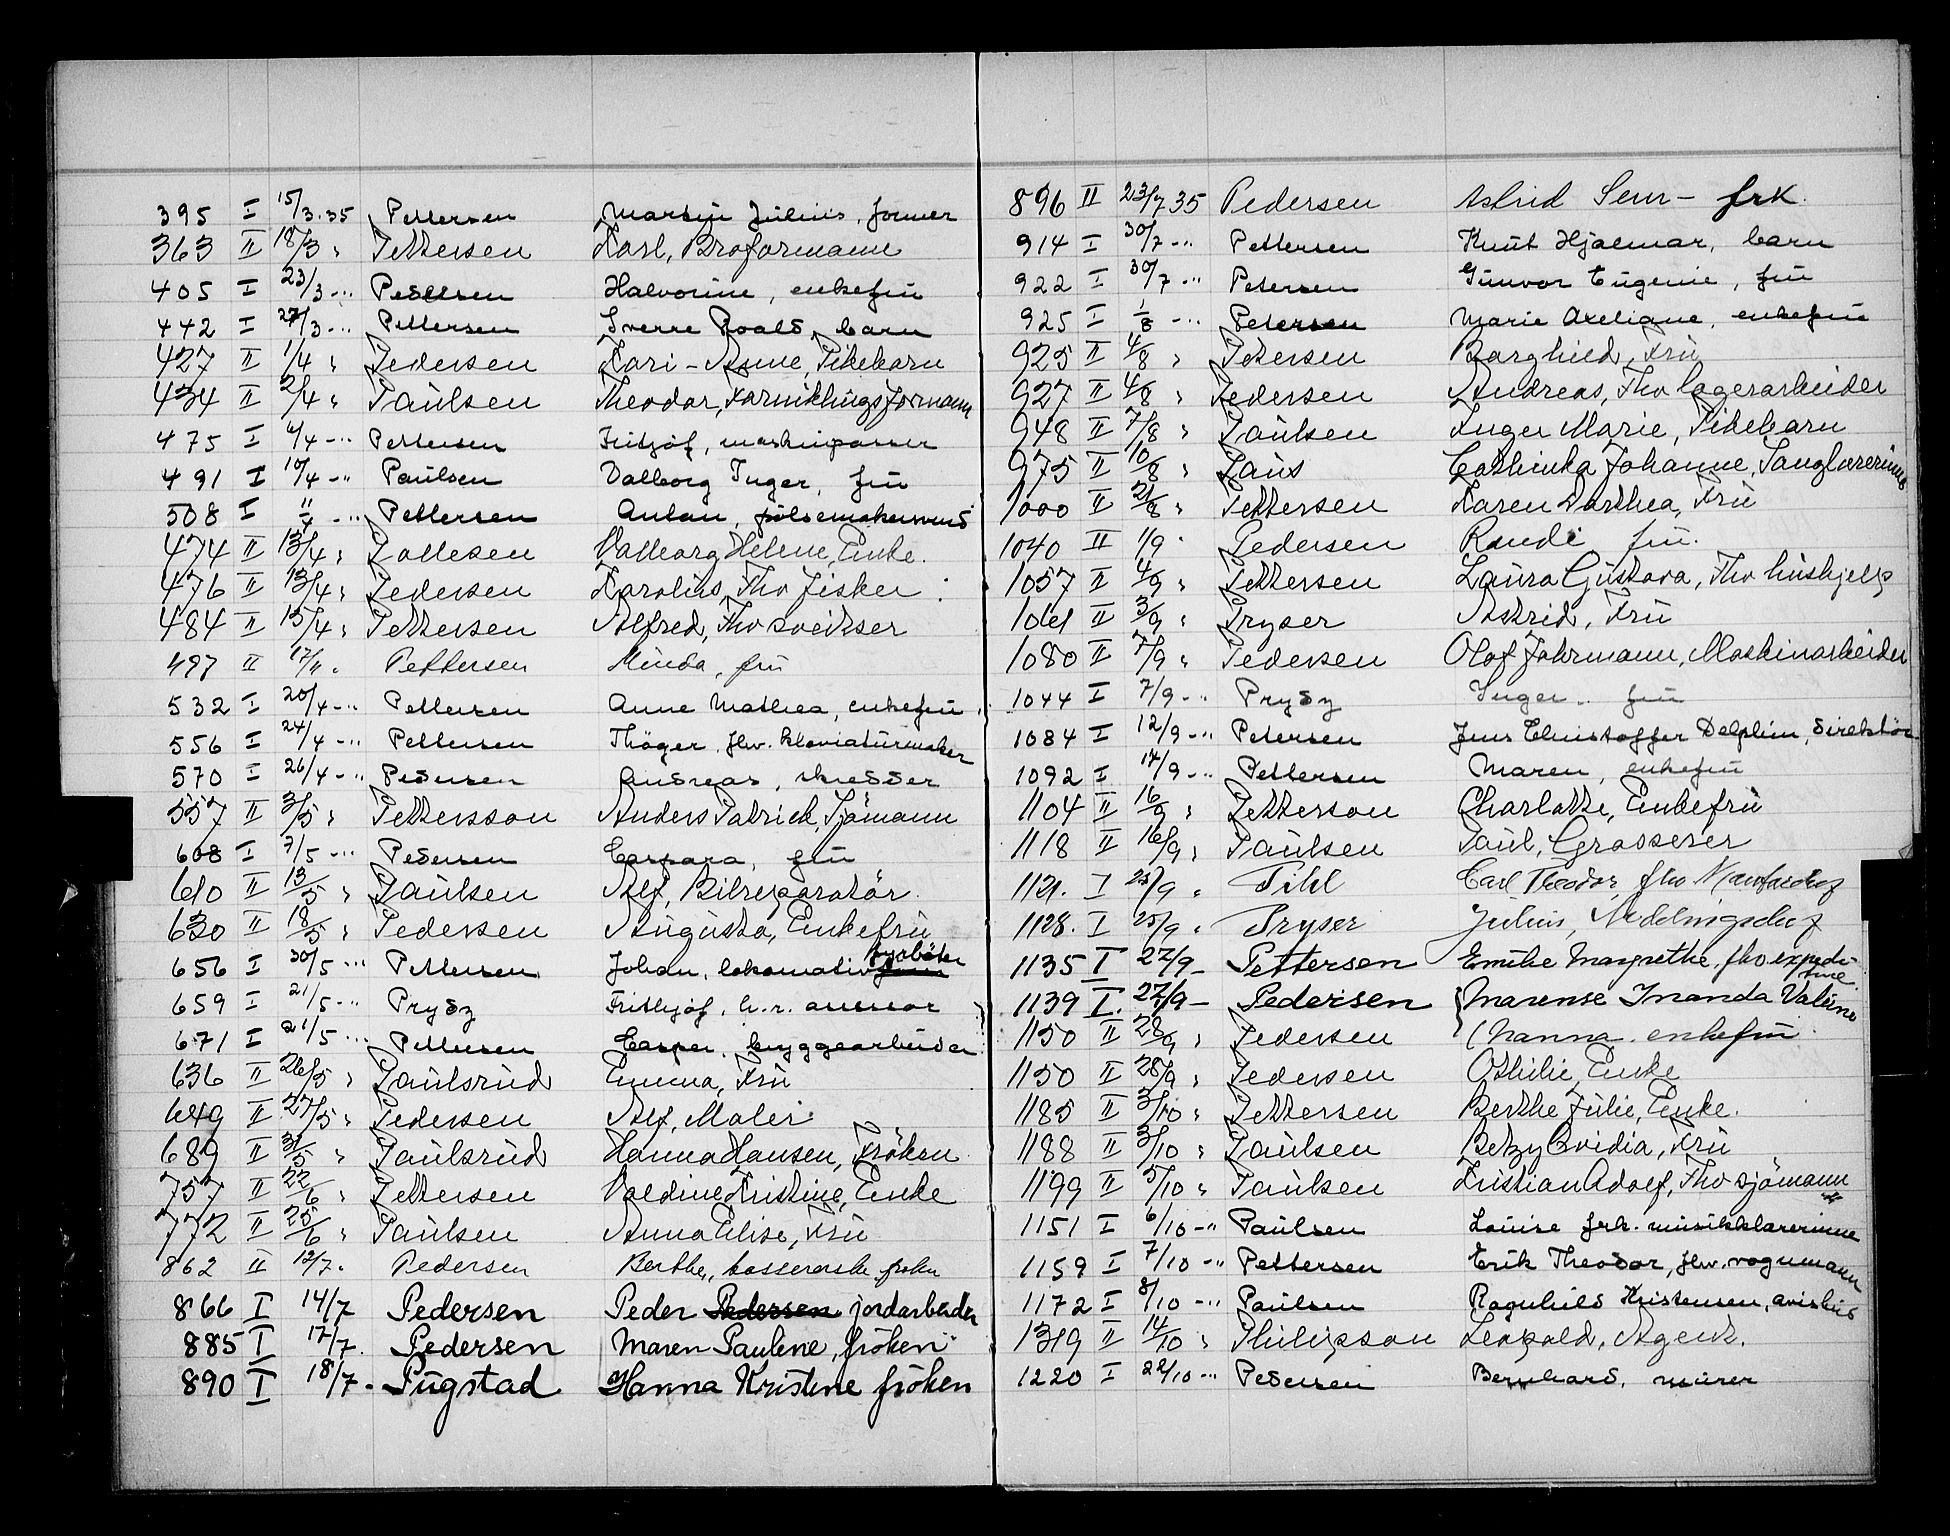 395 I 15/3.35 Pettersen Martin Julius, former
363 II 18/3 " Pettersen Karl, Broformann
405 I 23/3 -"- Pedersen Halvorine, enkefru
442 I 27/3 -"- Pettersen Sverre Roald, barn
427 II 1/4 " Pedersen Kari-Anne, Pikebarn
434 II 2/4 " Paulsen Theodor, Forniklingsformann
475 I 4/4 -"- Pettersen Fritjof, maskinpasser
491 I 10/4 -"- Paulsen Valborg Inger, fru
508 I 11/4 -"- Pettersen Anton, pølsemakersvend
474 II 13/4 " Pallesen Valborg Helene, Enke.
476 II 13/4 " Pedersen Karolius, Fhv fisker
484 II 15/4 " Pettersen Alfred, Fhv sveitser
497 II 17/4 " Pettersen Minda, fru
532 I 20/4 -"- Pettersen Anne Mathea, enkefru
556 I 24/4 -"- Pettersen Thöger, fhv. klaviaturmaker
570 I 26/4 -"- Pedersen Andreas, skredder
557 II 3/5 " Pettersson Anders Patrick, Sjömann
608 I 7/5 -"- Pedersen Caspara, fru
610 II 13/5 " Paulsen Alf, Bilreparatör.
630 II 18/5 " Pedersen Augusta, Enkefru
656 I 20/5 -"- Pettersen Johan, lokomotivfyrbøter
659 I 21/5 -"- Prydz Frithjof, h.r. assessor
671 I 21/5 -"- Pettersen Casper, bryggearbeider
636 II 26/5 " Paulsrud Emma, Fru
649 II 27/5 " Pedersen Alf, Maler
689 II 31/5 " Paulsrud Hanna Hansen, Fröken
757 II 22/6 " Pettersen Valdine Kristine, Enke
772 II 25/6 " Paulsen Anna Elise, Fru
862 II 12/7 " Pedersen Berthe, kassererske frøken
866 I 14/7 Pedersen Peder Pedersen jordarbeider
885 I 17/7. Pedersen Maren Pauline, fröken
890 I 18/7 - Pugstad Hanna Kristine fröken
896 II 23/7 35 Pedersen Astrid Sem - frk.
914 I 30/7 -"- Pettersen Knut Hjalmar, barn
922 I 30/7 -"- Petersen Gunvor Eugenie, fru
925 I 1/8 -"- Petersen Marie Axeliane, enkefru
925 II 4/8 " Petersen Borghild, Fru
927 II 4/8 " Pedersen Andreas, Fhv lagerarbeider
948 II 7/8 " Paulsen Inger Marie, Pikebarn
975 II 10/8 " Paus Cathinka Johanne, Sanglærerinne
1000 II 21/8 " Pettersen Karen Dorthea, Fru
1040 II 1/9 " Pedersen Randi fru.
1057 II 4/9 " Pettersen Laura Gustava, Fhv hushjelp
1061 II 3/9 " Pryser Astrid, Fru
1080 II 7/9 " Pedersen Olaf Johrmann, Maskinarbeider
1044 I 7/9 -"- Prydz Inger, fru
1084 I 12/9 -"- Petersen Jens Christoffer Delphin, direktör
1092 I 14/9 -"- Pettersen Maren, enkefru
1104 II 16/9 " Petterson Charlotte, Enkefru
1118 II 16/9 " Paulsen Paul, Grosserer
1121. I 25/9 " Pihl Carl Theodor, fhv
1128. I 25/9 " Pryser Julius,
1135 I 27/9 - Pettersen Emilie Margrethe, fhv expeditrice.
1139 I. 27/9 - Pedersen Marense Imanda Valine
1150 II 28/9 " Pedersen (Nanna. enkefru.
1150 II 28/9 " Pedersen Othilie, Enke
1185 II 3/10 " Pettersen Berthe Julie, Enke.
1188 II 3/10 " Paulsen Betzy Ovidia, Fru
1199 II 5/10 " Paulsen Kristian Adolf, Fhv sjömann
1151 I 6/10 -"- Paulsen Louise frk. musikklærerinne
1159 I 7/10 -"- Pettersen Erik Theodor, fhv. vognmann
1172 I 8/10 -"- Paulsen Ragnhild Kristensen, avisbud
1319 II 14/10 " Philipson Leopold, Agent.
1220 I 22/10 -"- Pedersen Bernhard, murer